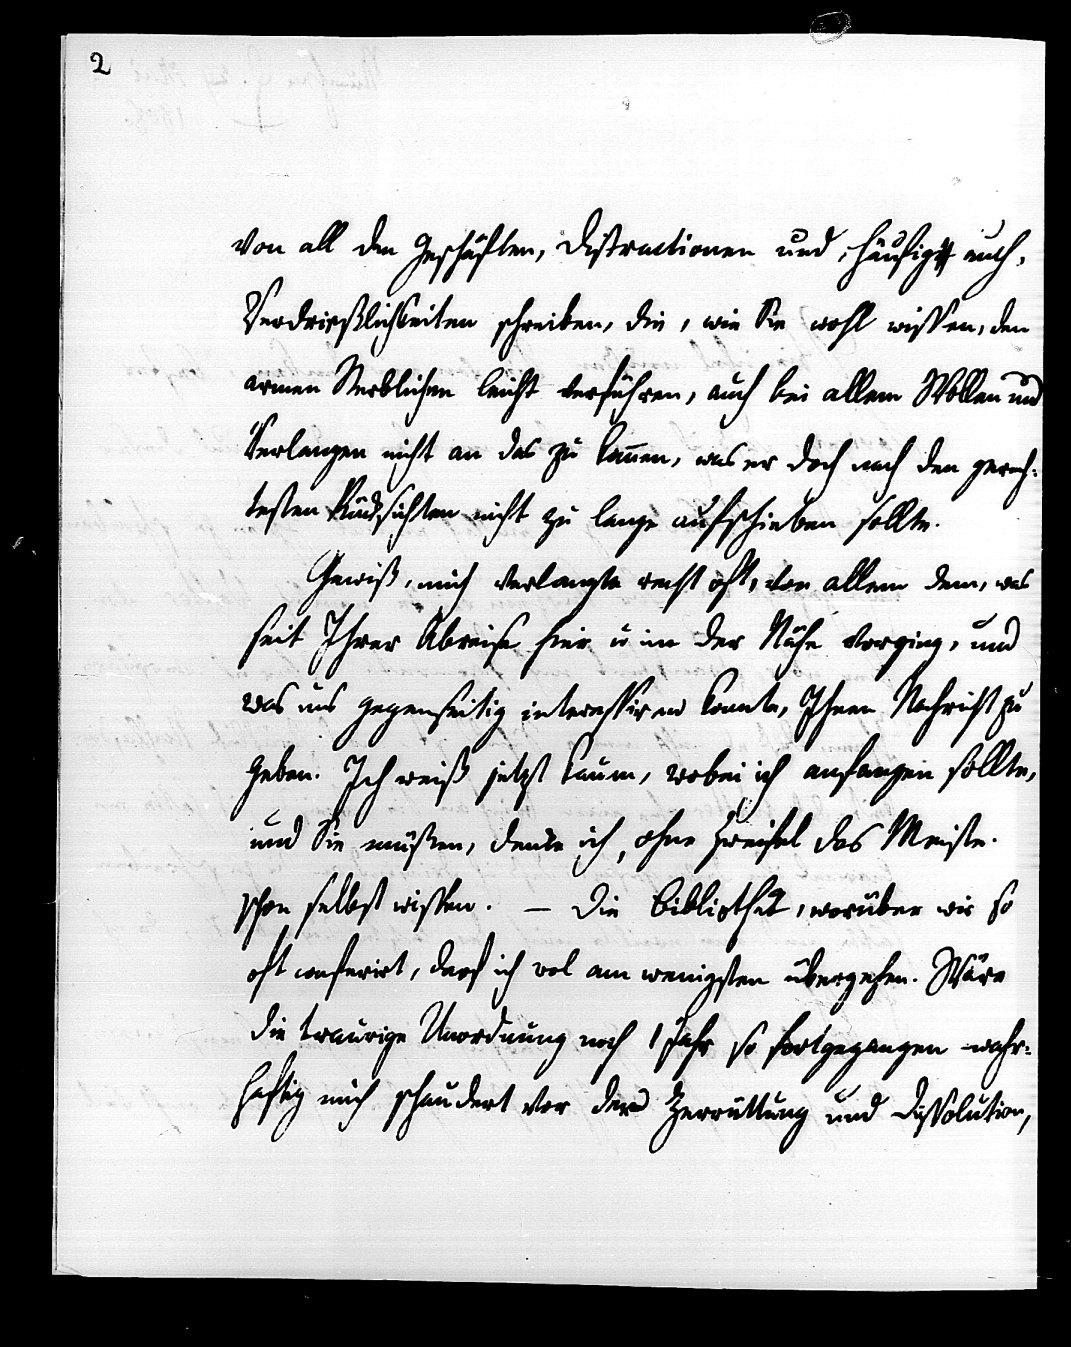 2
von all den Geschäften, Distractionen und, häufigst auch,
Verdrießlichkeiten schreiben, die, wie Sie wohl wissen, den
armen Sterblichen leicht verführen, auch bei allem Wollen und
Verlangen nicht an das zu kom̅en, was er doch nach den gerech-
testen Rücksichten nicht zu lange aufschieben sollte.
Gewiß, mich verlangte recht oft, von allem dem, was
seit Ihrer Abreise hier u in der Nähe vorging, und
was uns gegenseitig interessiren konnte, Ihnen Nachricht zu
geben. Ich weiß jetzt kaum, wobei ich anfangen sollte,
und Sie müßen, denke ich, ohne Zweifel das Meiste
schon selbst wissen. – Die Bibliothek, worüber wir so
oft conferirt, darf ich wol am wenigsten übergehen. Wäre
die traurige Unordnung noch 1 Jahr so fortgegangen wahr-
haftig mich schaudert vor der Zerrüttung und Dissolution,